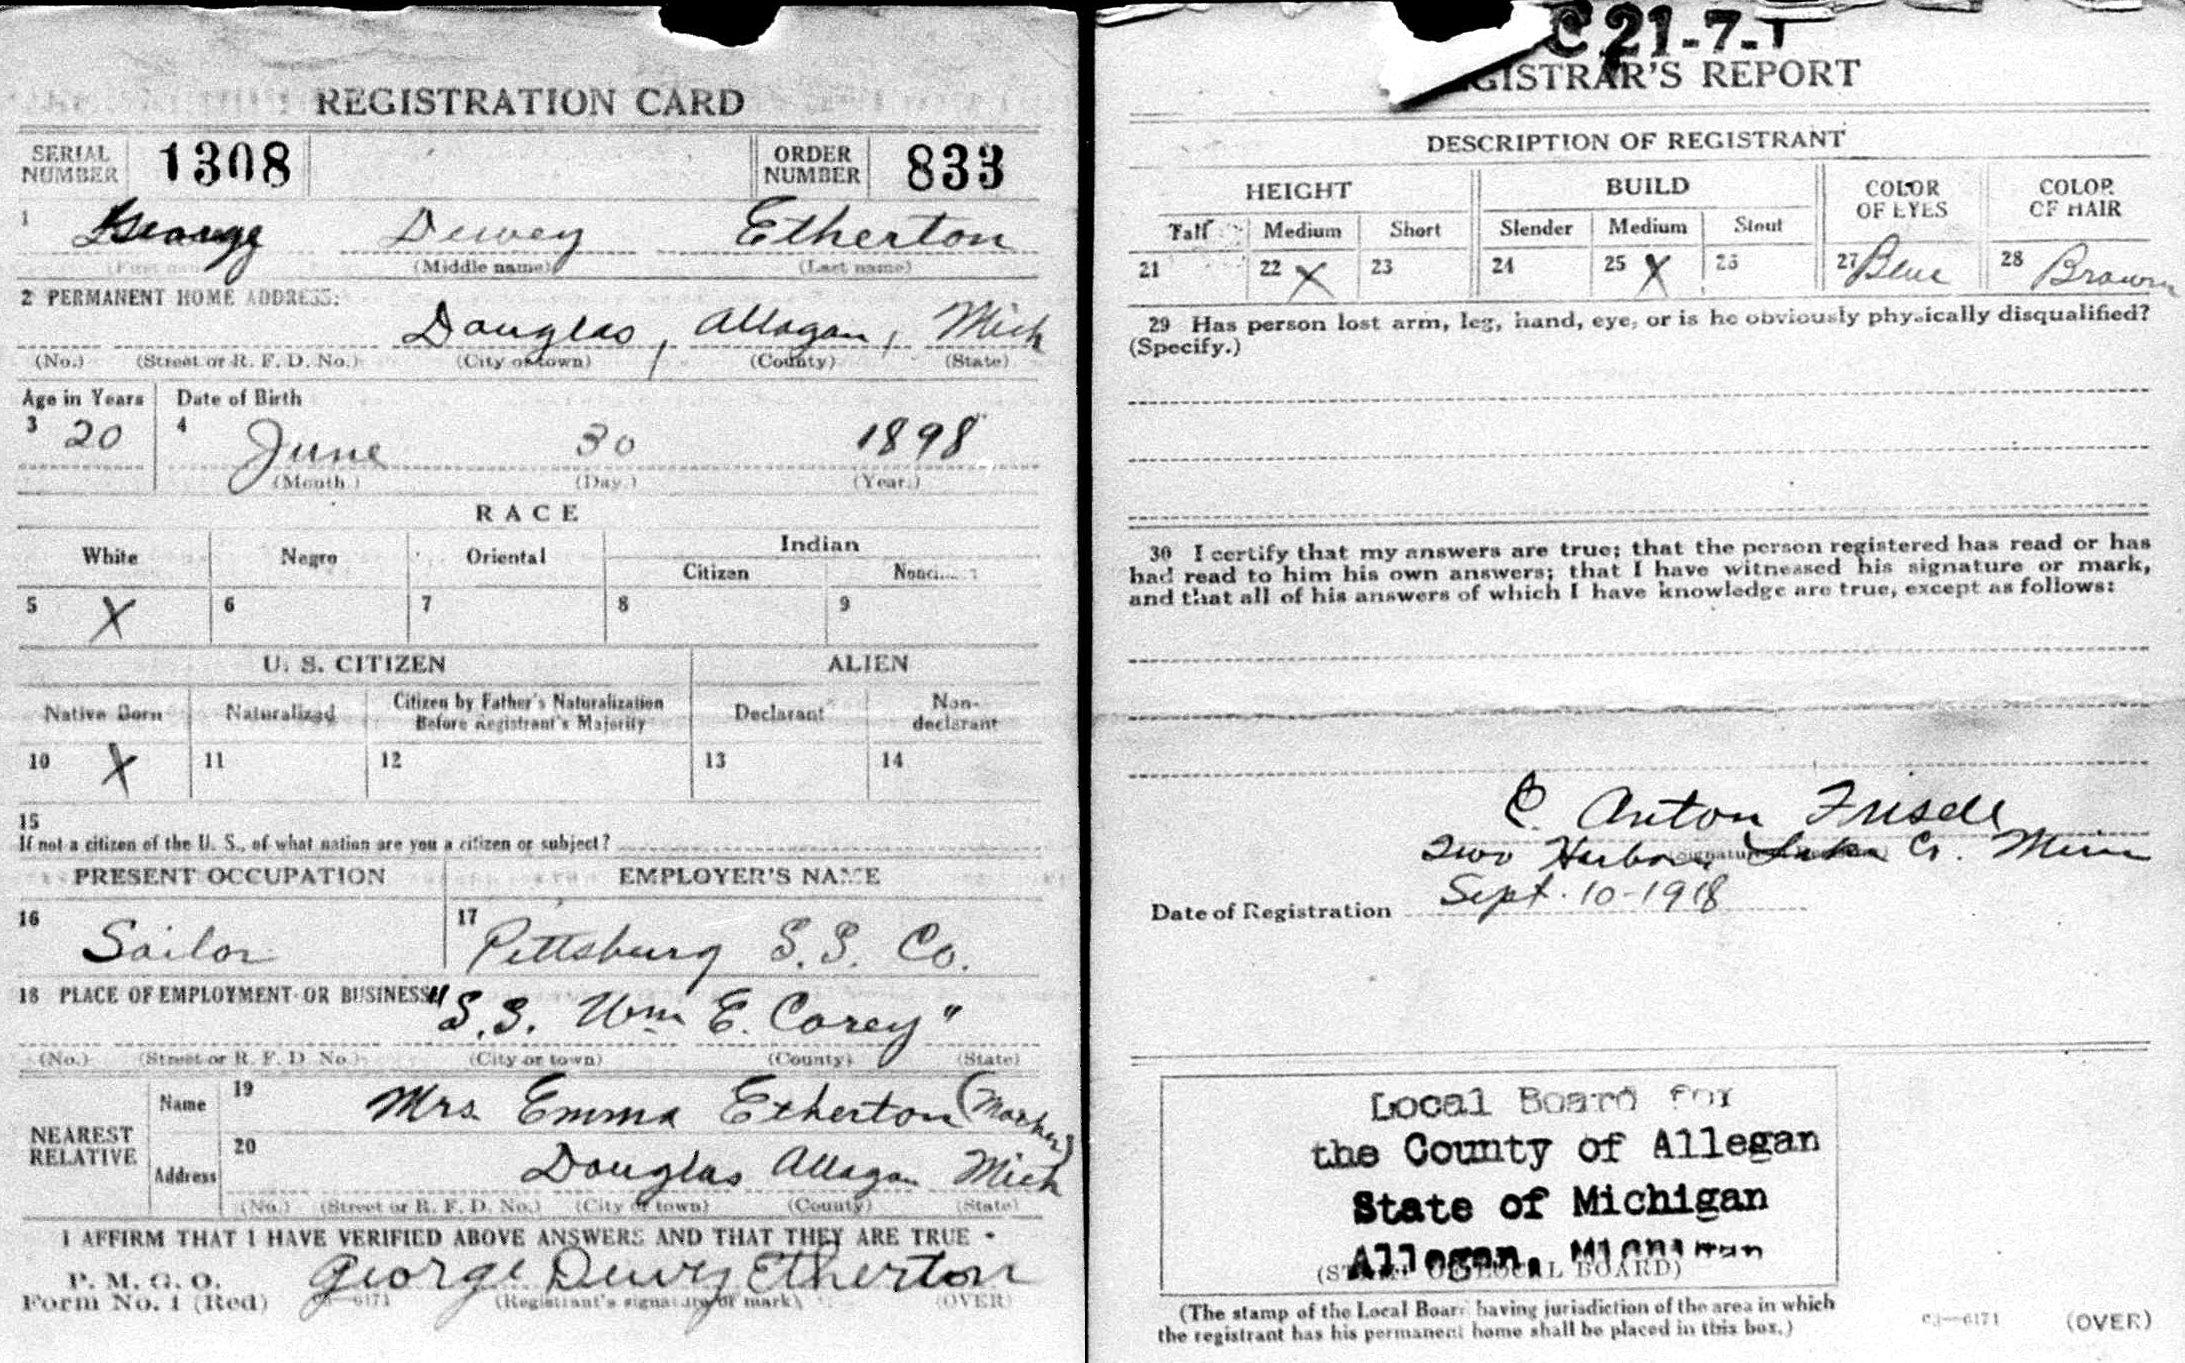 REGISTRATION CARD
SERIAL NUMBER 1308 ORDER NUMBER 833
1 George Dewey Etherton
(Middle name) (Last name)
2 PERMANENT HOME ADDRESS:
Douglas, Allagan, Mich
(No.) (Street or R. F. D. No.) (City or town) (County) (State)
Age in Years Date of Birth
3 20 4 June 30 1898
(Month.) (Day.) (Year.)
RACE
White Negro Oriental Indian
Citizen
5 X 6 7 8 9
U. S. CITIZEN ALIEN
Native Born Naturalized Citizen by Father's Naturalization Before Registrant's Majority Declarant Non-declarant
10 X 11 12 13 14
15
If not a citizen of the U. S., of what nation are you a citizen or subject?
PRESENT OCCUPATION EMPLOYER'S NAME
16 Sailor 17 Pittsburg S.S. Co.
18 PLACE OF EMPLOYMENT OR BUSINESS:
"S.S. Wm E. Corey"
(No.) (Street or R. F. D. No.) (City or town) (County) (State)
NEAREST RELATIVE
Name 19 Mrs. Emma Etherton (Mother)
Address 20 Douglas Allagan Mich
(No.) (Street or R. F. D. No.) (City or town) (County) (State)
I AFFIRM THAT I HAVE VERIFIED ABOVE ANSWERS AND THAT THEY ARE TRUE
P. M. G. O.
Form No. 1 (Red) George Dewey Etherton
6171 (Registrant's signature or mark) (OVER)
C 21-7-1
GISTRAR'S REPORT
DESCRIPTION OF REGISTRANT
HEIGHT BUILD COLOR OF EYES COLOR OF HAIR
Tall Medium Short Slender Medium Stout
21 22 X 23 24 25 X 26 27 Blue 28 Brown
29 Has person lost arm, leg, hand, eye, or is he obviously physically disqualified?
(Specify.)
30 I certify that my answers are true; that the person registered has read or has
had read to him his own answers; that I have witnessed his signature or mark,
and that all of his answers of which I have knowledge are true, except as follows:
C. Anton Frisell
Two Harbors Lake Co. Minn
Date of Registration Sept. 10-1918
Local Board for
the County of Allegan
State of Michigan
Allegan, Michigan
(STAMP OF LOCAL BOARD)
(The stamp of the Local Board having jurisdiction of the area in which
the registrant has his permanent home shall be placed in this box.)
6171 (OVER)